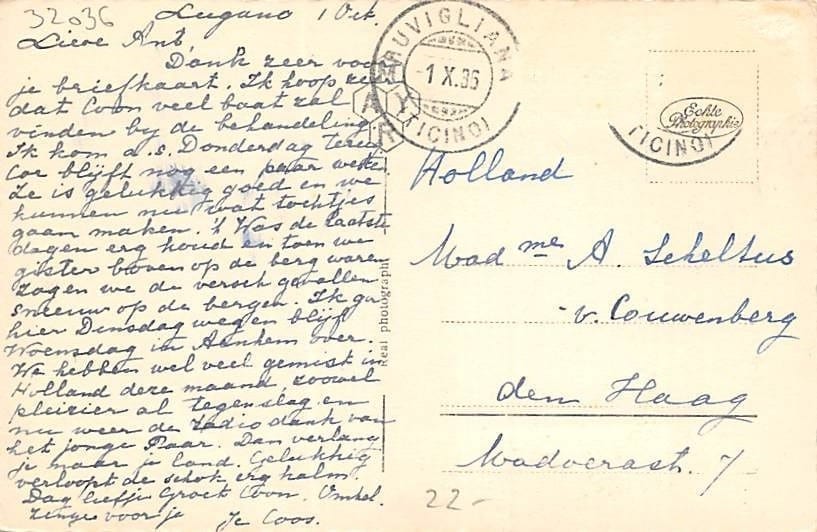 32036
Lugano 1 Oct.
Lieve Ant,
Dank zeer voor
je briefkaart. Ik hoop zeer
dat Coon veel baat zal
vinden by de behandeling
Ik kom a.s. Donderdag terug
Cor blijft nog een paar weken.
Ze is gelukkig goed en we
kunnen nu wat tochtjes
gaan maken. 't Was de laatste
dagen erg koud en toen we
gister boven op de berg waren
zagen we de versch gevallen
sneeuw op de bergen. Ik ga
hier Dinsdag weg en blijf
Woensdag in Arnhem over.
We hebben wel veel gemist in
Holland deze maand, zoowel
pleizier als tegenslag en
nu weer de radio dank van
het jonge Paar. Dan verlang
je maar je land. Gelukkig
verloopt de schok erg kalm.
Dag liefje Groet Coon.
voor je Je Coos.
RUVIGLIANA
1 X.36
(TICINO)
Real photograph
Echte
Photographie
(TICINO)
Holland
Mad me A. Scheltus
v. Couwenberg
den Haag
7
22-